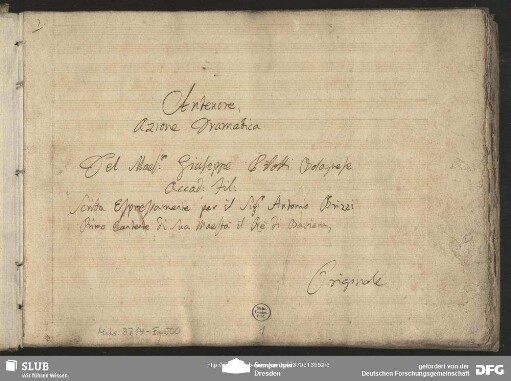 1
Antenore,
Azione Dramatica
Del Maes.ro Giuseppe Pilotti Bolognese
Accad: Fil:
Scritta Espressamente per il Sig.r Antonio Brizzi
Primo Cantante di Sua Maestà il Rè di Baviera,
Originale
1
SLUB
Wir führen Wissen.
Dresden
gefördert von der
Deutschen Forschungsgemeinschaft
DFG